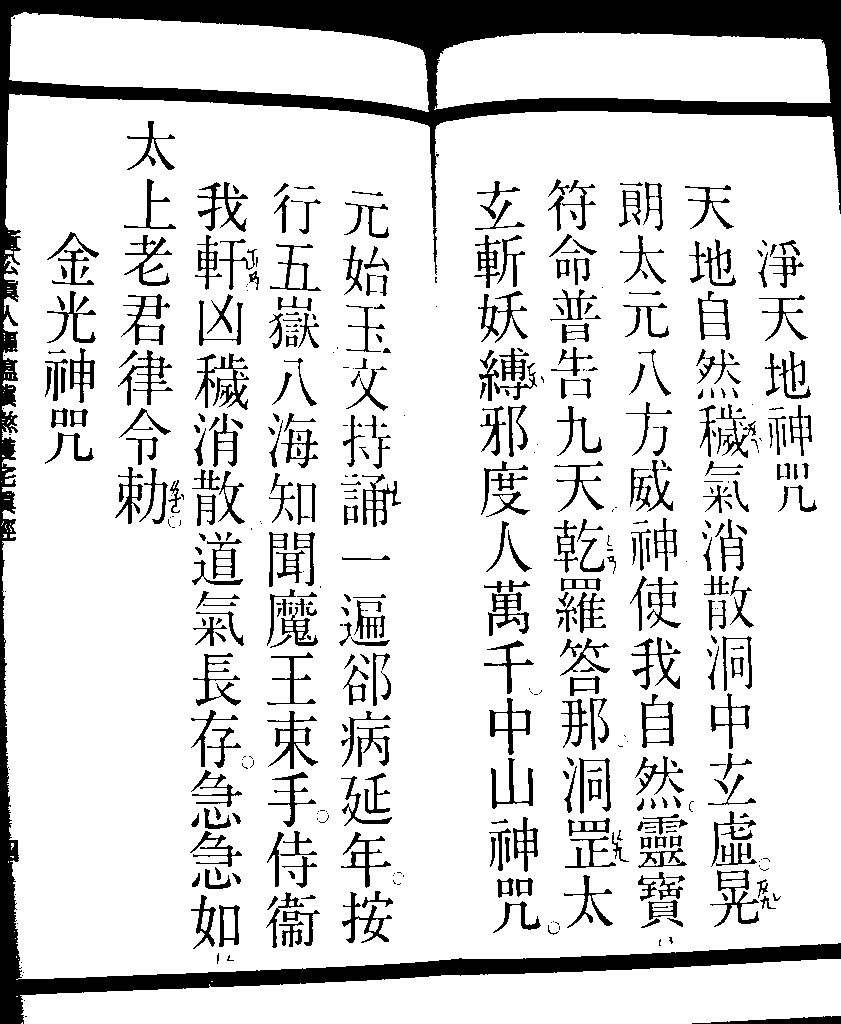 淨天地神咒
天地自然穢氣消散洞中玄虛晃
朗太元八方威神使我自然靈寶
符命普告九天乾羅答那洞罡太
玄斬妖縛邪度人萬千中山神咒
元始玉文持誦一遍郤病延年按
行五嶽八海知聞魔王束手侍衞
我軒凶穢消散道氣長存急急如
太上老君律令勅
金光神咒